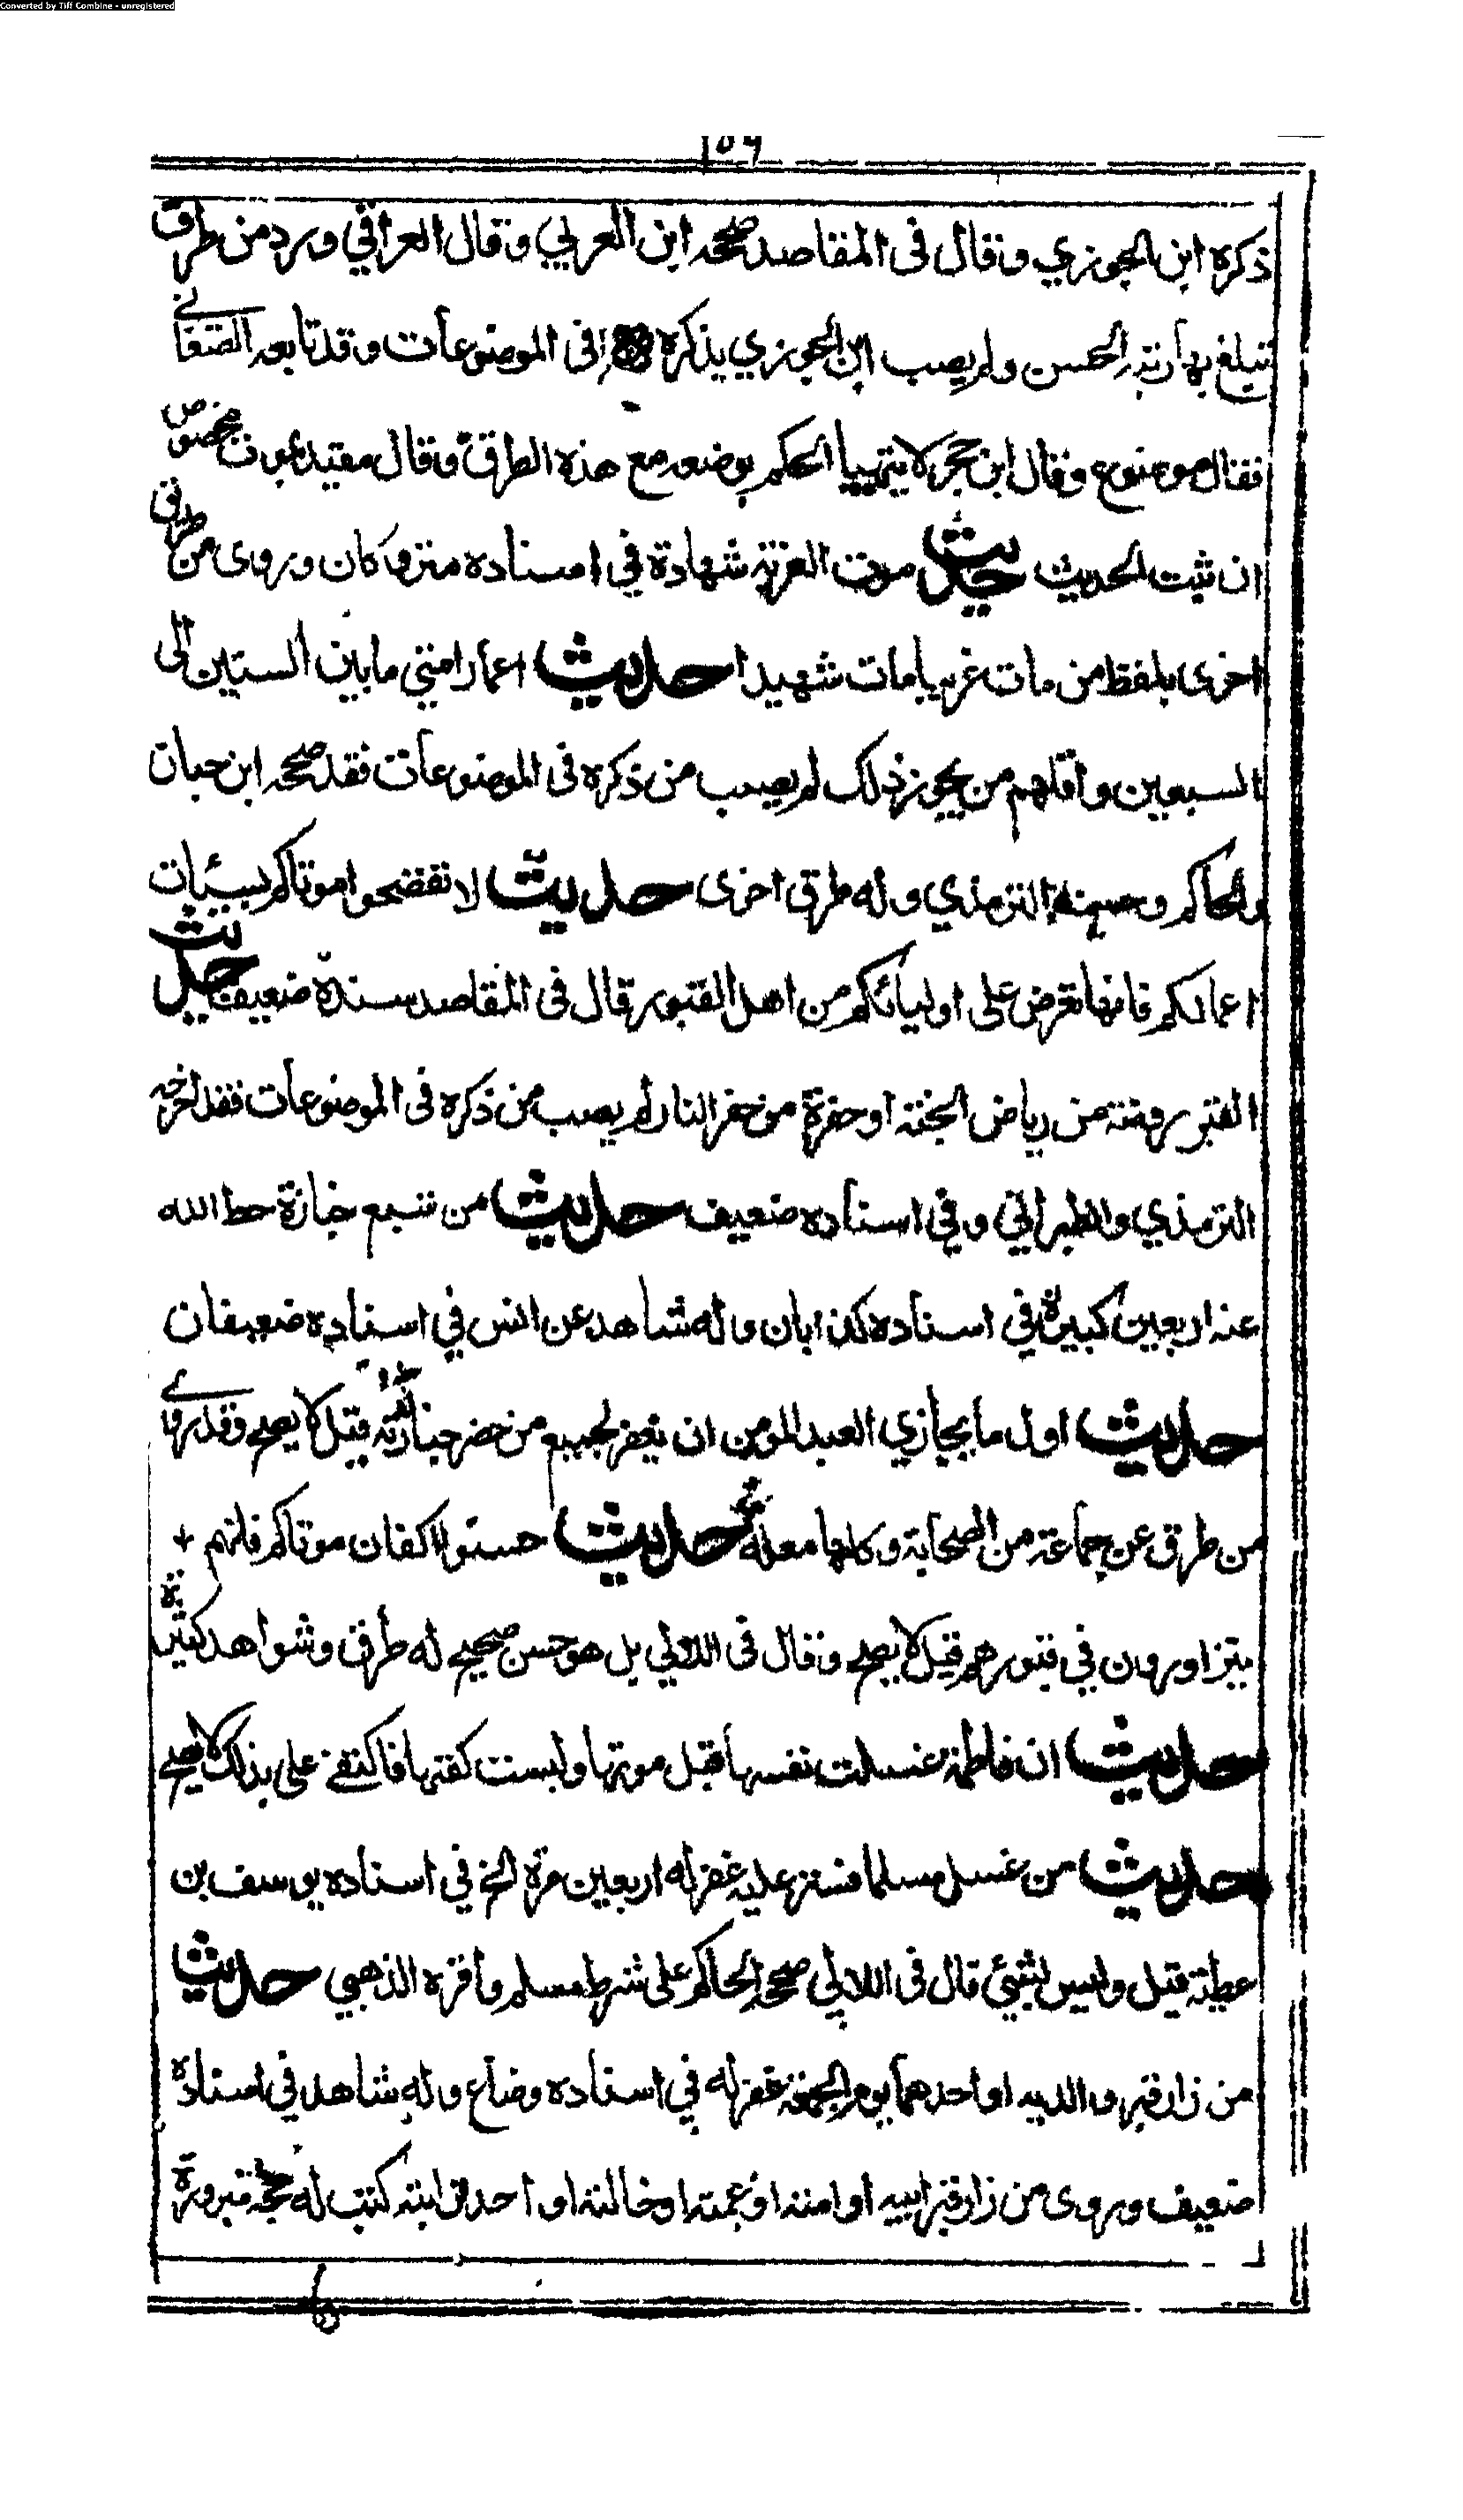 Converted by Tiff Combine - unregistered
١٥٦
ذكره ابن الجوزي وقال فى المقاصد صححه ابن العربي وقال العراقي ورد من طرق
تبلغ بها رتبة الحسن ولم يصب ابن الجوزي بذكره فى الموضوعات وقد تابعه الصغانے
فقال موضوع وقال ابن حجر لا يتهيأ الحكم بوضعه مع هذه الطرق وقال مقيد بموت مخصوص
ان ثبت الحديث حديث موت الغربة شهادة في اسناده متروكان وروى من طرق
اخرى بلفظ من مات غريبا مات شهيدا حديث اعمار امتي ما بين الستين الى
السبعين واقلهم من يجوز ذلك لم يصب من ذكره فى الموضوعات فقد صححه ابن حبان
والحاكم وحسنه الترمذي وله طرق اخرى حديث لا تفضحوا موتاكم بسيئات
اعمالكم فانها تعرض على اوليائكم من اهل القبور قال فى المقاصد سنده ضعيف حديث
القبر روضة من رياض الجنة او حفرة من حفر النار لم يصب من ذكره فى الموضوعات فقد اخرجه
الترمذي والطبراني وفي اسناده ضعيف حديث من تبع جنازة حط الله
عنه اربعين كبيرة في اسناده كذابان وله شاهد عن انس في اسناده ضعيفان
حديث اول ما يجازي العبد المؤمن ان يغفر لجميع من حضر جنازته قيل لا يصح وقد
من طرق عن جماعة من الصحابة وكلها معلة حديث حسنوا اكفان موتاكم فانهم +
يتزاورون في قبورهم قيل لا يصح وقال فى اللالي بل هو حسن صحيح له طرق وشواهد كثيرة
حديث ان فاطمة غسلت نفسها قبل موتها ولبست كفنها فاكتفى على بذلك لا يصح
حديث من غسل مسلما فستر عليه غفر له اربعين مرة الخ في اسناده يوسف بن
عطية قيل وليس بشئ قال فى اللالي صححه الحاكم على شرط مسلم واقره الذهبي حديث
من زار قبر والديه او احدهما يوم الجمعة غفر له في اسناده وضاع وله شاهد في اسناده
ضعيف وروى من زار قبر ابيه او امه او عمته او خالته او احد قرابته كتب له حجة مبرورة